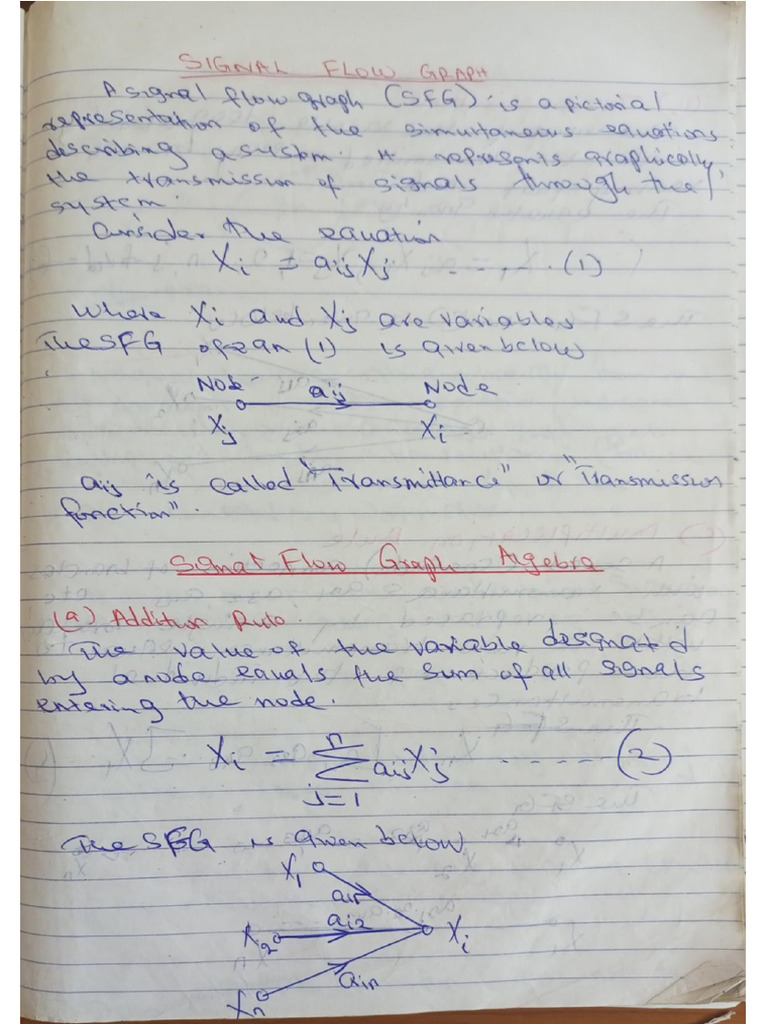 SIGNAL FLOW GRAPH
A signal flow graph (SFG) is a pictorial
representation of the simultaneous equations
describing a system. It represents graphically,
the transmission of signals through the
system.
Consider the equation
Xi = aijXj ---- (1)
Where Xi and Xj are variables
The SFG of eqn (1) is given below
Node aij Node
Xj Xi
aij is called "Transmittance" or "Transmission
function".
Signal Flow Graph Algebra
(a) Addition Rule
The value of the variable designated
by a node equals the sum of all signals
entering the node.
Xi = n∑j=1 aijXj ------ (2)
The SFG is given below
X1
ai1
X2 ai2 Xi
ain
Xn